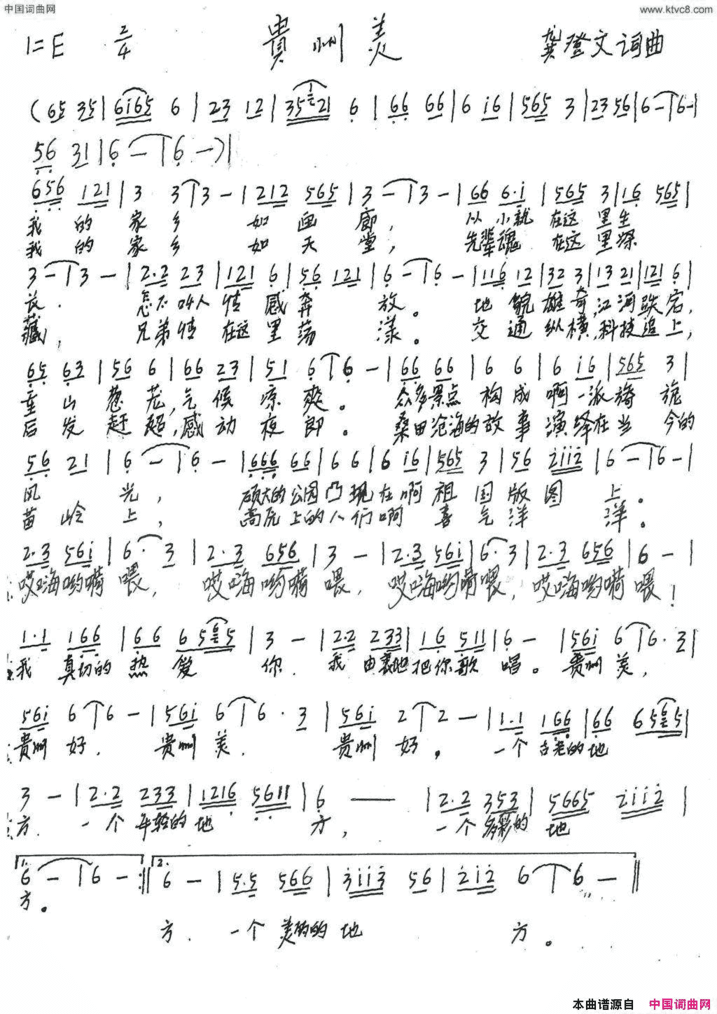 中国词曲网
www.ktvc8.com
1=E 2/4 貴州美 龚登文词曲
(65 35|6i65 6|23 12|35 21 6|66 66|6 i6|565 3|23 56|6-|6-|
56 31|6-|6-)|
656 121|3 3|3-|212 565|3-|3-|66 6·i|565 3|16 565|
我的家乡 如画廊, 从小就在这里生
我的家乡 如天堂, 先辈魂在这里深
3-|3-|2·2 23|121 6|56 121|6-|6-|116 12|32 3|13 21|121 6|
长. 怎不叫人情感奔放。地貌雄奇,江河跌宕,
藏, 兄弟情在这里荡漾。交通纵横,科技追上,
65 63|56 6|66 23|51 6|6-|66 66|6 6|6 i6|565 3|
重山苍茏,气候凉爽。众多景点构成啊一派旖旎
后发赶超,感动夜郎。桑田沧海的故事演绎在当今的
56 21|6-|6-|666 66|6 6|6 i6|565 3|56 2ii2|6-|6-|
风光, 硕大的公园凸现在啊祖国版图上。
苗岭上, 高原上的人们啊喜气洋洋。
2·3 56i|6·3|2·3 656|3-|2·3 56i|6·3|2·3 656|6-|
哎嗨哟嗬喂, 哎嗨哟嗬喂, 哎嗨哟嗬喂, 哎嗨哟嗬喂!
1·1 166|66 65 5|3-|2·2 233|16 511|6-|56i 6|6·3|
我真切的热爱你. 我由衷地把你歌唱。贵州美,
56i 6|6-|56i 6|6·3|56i 2|2-|1·1 166|66 65 5|
贵州好. 贵州美. 贵州好。一个古老的地
3-|2·2 233|1216 5611|6——|2·2 353|5665 2ii2|
方. 一个年轻的地方, 一个多彩的地
1. 6-|6-:‖2. 6-|5·5 566|3ii3 56|2i2 6|6-‖
方。
方. 一个美丽的地方。
本曲谱源自 中国词曲网